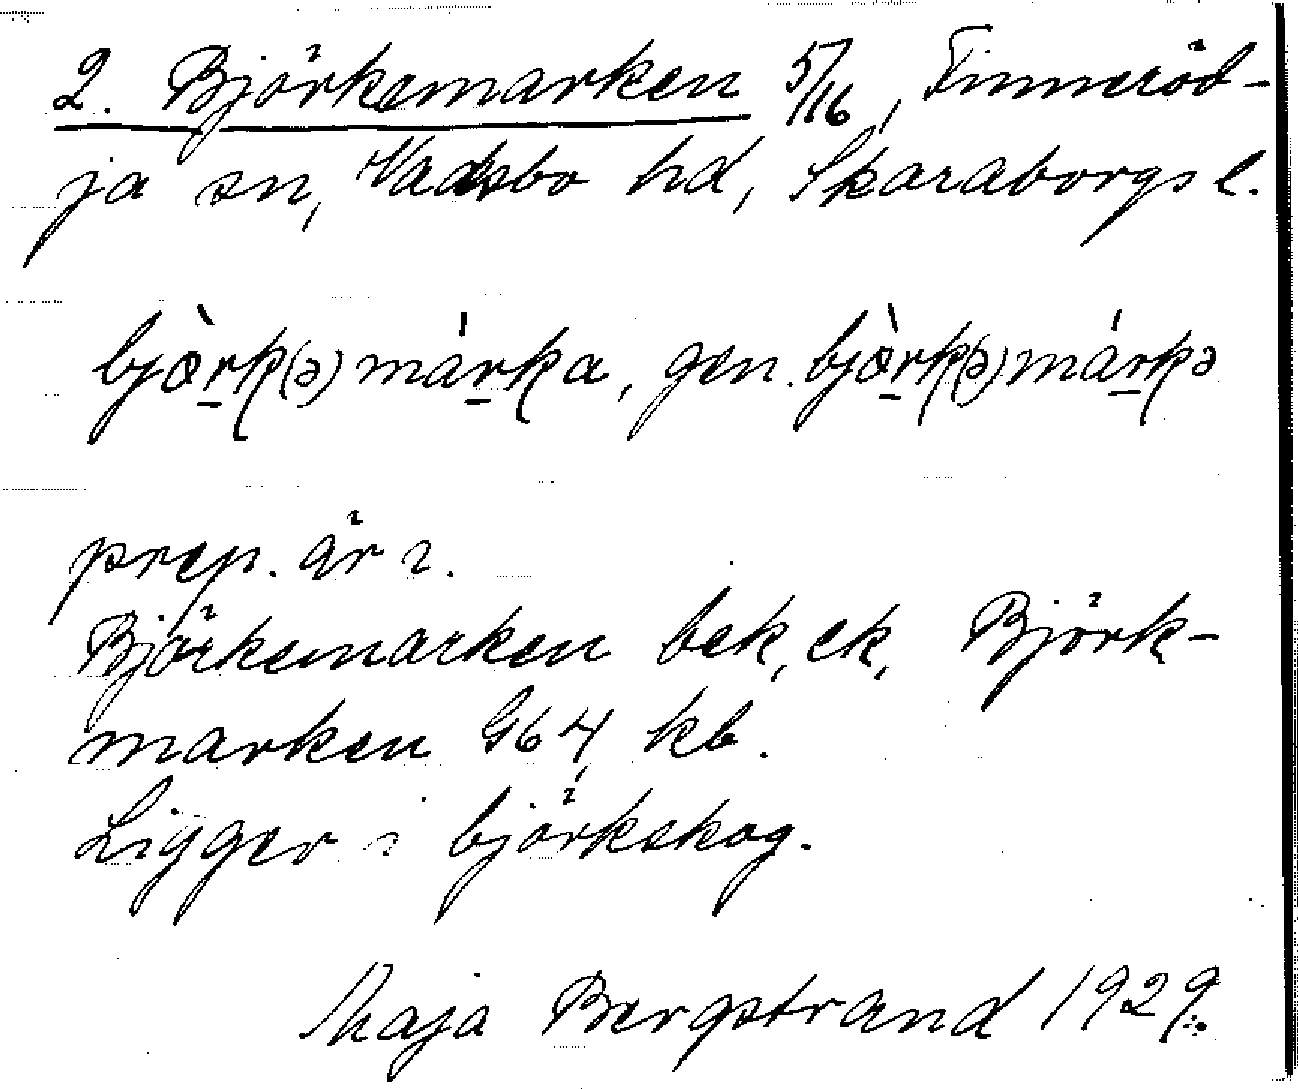 2. Björkemarken 5/16, Finneröd-
ja sn, Vadsbo hd, Skaraborgs l.
bjò̈rk(ə)márka, gen. bjò̈rk(ə)márkə
prep. är i.
Björkemarken bek, ek, Björk-
marken G64, kb.
Ligger i björkskog.
Maja Bergstrand 1929.